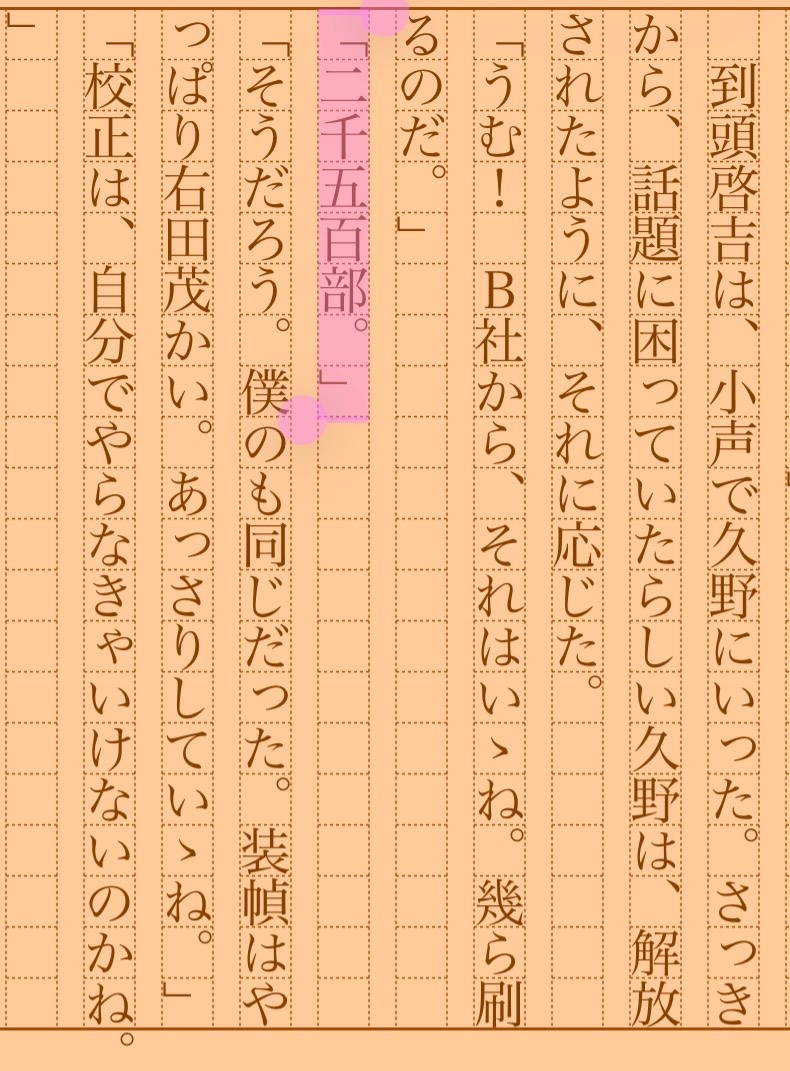 到頭啓吉は、小声で久野にいった。さっき
から、話題に困っていたらしい久野は、解放
されたように、それに応じた。
「うむ！　Ｂ社から、それはいゝね。幾ら刷
るのだ。」
「二千五百部。」
「そうだろう。僕のも同じだった。装幀はや
っぱり右田茂かい。あっさりしていゝね。」
「校正は、自分でやらなきゃいけないのかね。
」